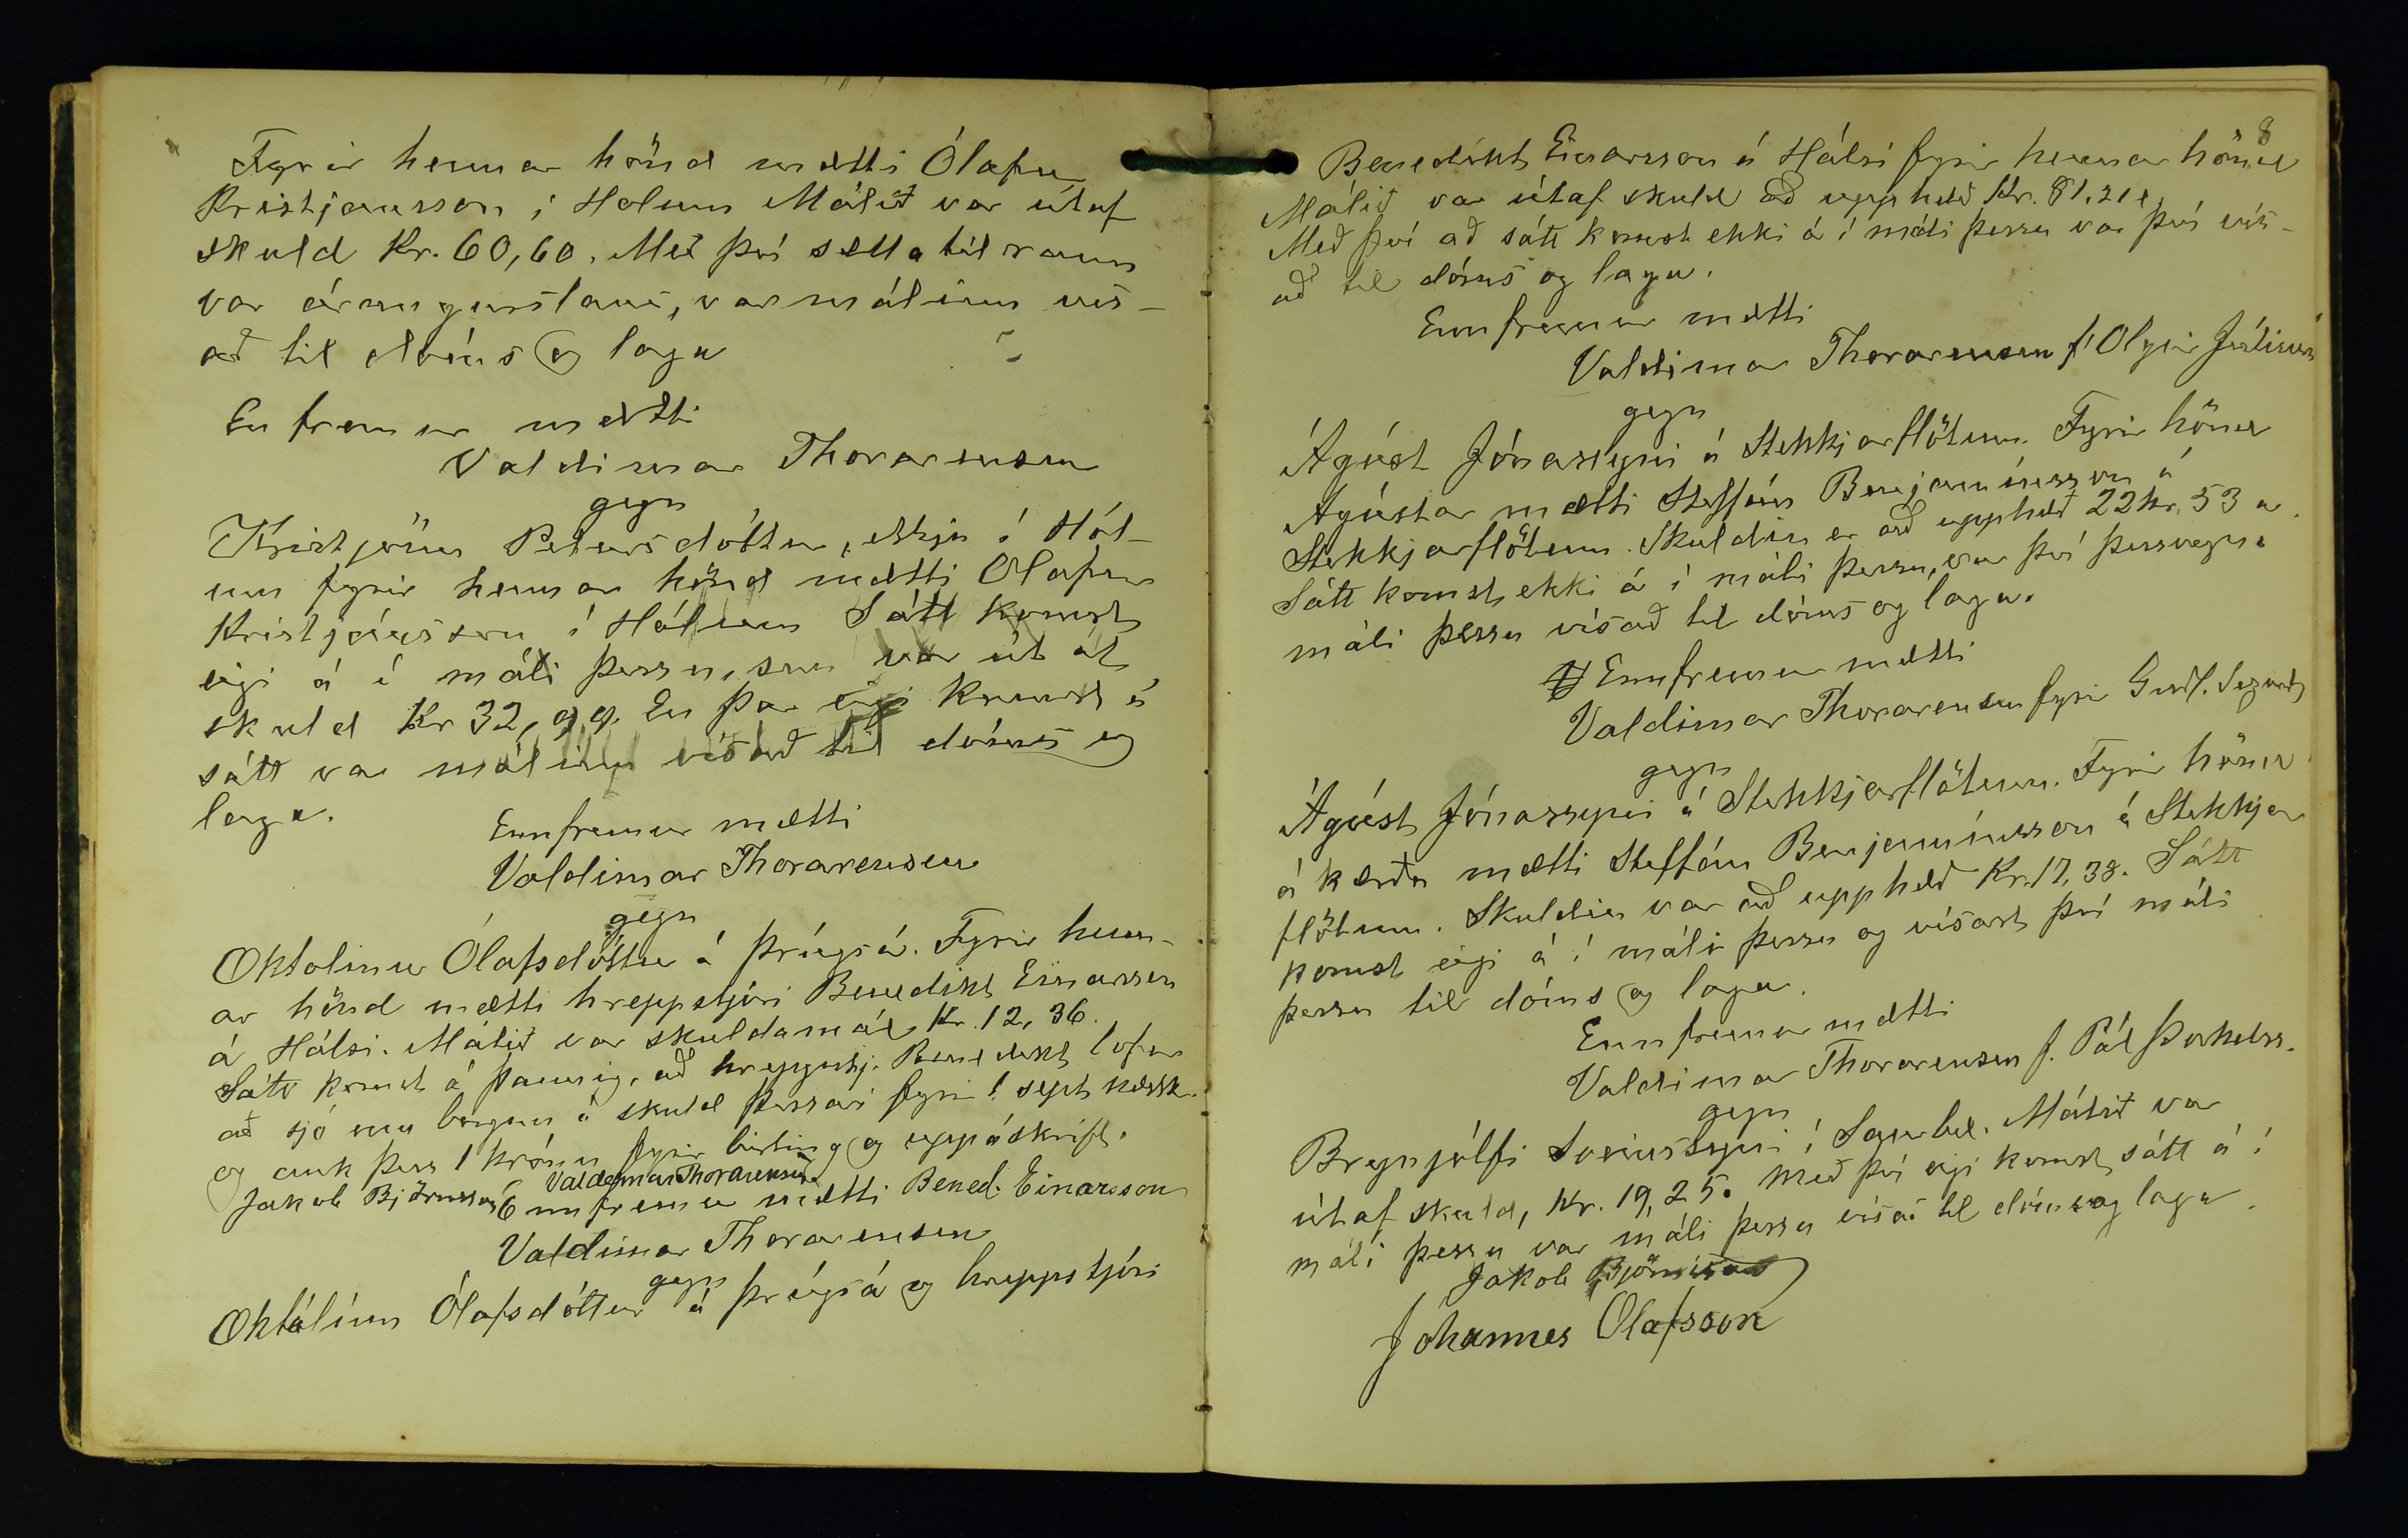 Fyrir hennar hönd mætti Ólafur
Kristjansson í Holum Málið var útaf
skuld Kr. 60,60. Með því sættatilraun
var árangurslaus, var málinu vís-
að til dóms og laga
En fremur mætti
Valdimar Thorarensen
gegn
Kristjönu Petursdóttur, ekkju í Hól-
um fyrir hennar hönd mætti Olafur
Kristjánsson í Hólum Sátt komst
eigi á í máli þessu, sem var út af
skuld Kr 32,99. En þar eigi komst á
sátt var málinu vísað til dóms og
laga.
Ennfremur mætti
Valdimar Thorarensen
gegn
Oktolinu Ólafsdóttur á Þrúgsá. Fyrir henn-
ar hönd mætti hreppstjóri Benedikt Einarsson
á Hálsi. Málið var skuldamál Kr. 12,36.
Sátt komst á þannig, að hreppstj. Benedikt lofar
að sjá um borgun á skuld þessari fyrir 1 sept næstk.
og auk þess 1 krónu fyrir birting og uppáskrift.
Jakob Björnsson Valdemar Thorarensen
Ennfremur mætti Bened. Einarsson
Valdimar Thorarensen
gegn
Oktálínu Ólafsdóttur á Þrúgsá og hreppstjóri
8
Benedikt Einarsson á Hálsi fyrir hennar hönd
Málið var útaf skuld að upphæð Kr. 81.21 e
Með því að sátt komst ekki á í máli þessu var því vís-
að til dóms og laga.
Ennfremur mætti
Valdimar Thorarensen f. Olgeir Júlíuss
gegn
Ágúst Jónassyni á Stekkjarflötum. Fyrir hönd
Ágústar mætti Steffán Benjamínsson á
Stekkjarflötum. Skuldin er að upphæð 22 kr. 53 a.
Sátt komst ekki á í máli þessu, var því þessvegna
máli þessu vísað til dóms og laga.
Ennfremur mætti
Valdimar Thorarensen fyrir Guðl. Sigurðs
gegn
Ágúst Jónassyni á Stekkjarflötum. Fyrir hönd
ákærða mætti Steffán Benjamínsson á Stekkjar
flötum. Skuldin var að upphæð Kr. 17,38. Sátt
komst eigi á í máli þessu og vísast því máli
þessu til dóms og laga.
Ennfremur mætti
Valdimar Thorarensen f. Pál Þorkelss.
gegn
Brynjólfi í Saurbæ. Málið var
útaf skuld, Kr. 19,25. Með því eigi komst sátt á í
máli þessu var máli þessu vísað til dóms og laga.
Jakob Björnsson
Jóhannes Olafsson